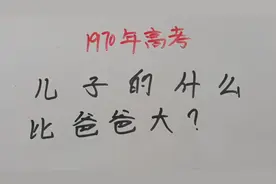 1970年高考
儿子的什么
比爸爸大?